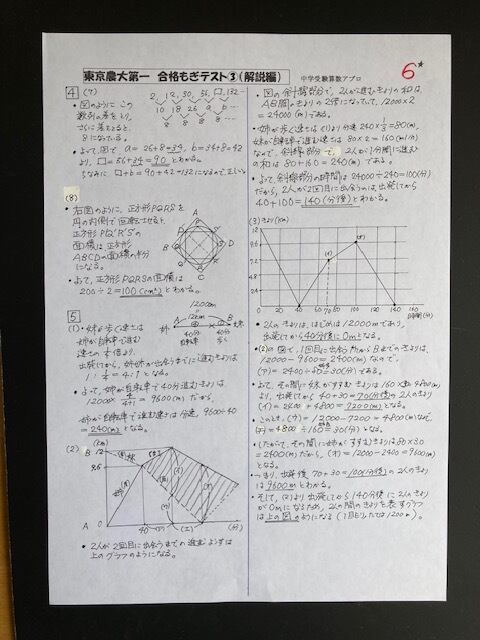 東京農大第一 合格もぎテスト③(解説編)
中学受験算数アプロ
6
4 (7)
2, 12, 30, 56, □, 132…
10 18 26 a b …
8 8 8 8 …
・図のように この
数列の差をとり、
さらに差をとると、
8になっている。
・よって、図で a=26+8=34, b=34+8=42
より、□=56+34=90 とわかる。
ちなみに、□+b=90+42=132になるので正しい。
(8)
・右図のように、正方形PQRSを
円の内側で回転させると、
正方形PQ'R'S'の
面積は、正方形
ABCDの面積の半分
になる。
・よって、正方形PQRSの面積は
200÷2=100(cm²)とわかる。
5
(1)・妹が歩く速さは
姉が自転車で進む
12000m
12km
A
B
姉
妹
40分
自転車
40分
歩く
出発してから、姉妹が出会うまでに進むきょりは
・よって、姉が自転車で40分進むきょりは
=9600(m)だから、
姉が自転車で進む速さは分速、9600÷40
=240(m)となる。
(2)
(km)
B 12
9.6
A 0
40
(分)
・2人が2回目に出会うまでの進むようすは
上のグラフのようになる。
・図の斜線部分で、2人が進むきょりの和は、
AB間のきょりの2倍になっていて、12000×2
=24000(m)である。
・姉が歩く速さは(1)より分速240×1/3=80(m)、
妹が自転車で進む速さは80×2=160(m)
なので、斜線部分で、2人が1分間に進む
きょりの和は80+160=240(m)である。
・よって、斜線部分の時間は24000÷240=100(分)
だから、2人が2回目に出会うのは、出発してから
40+100=140(分後)とわかる。
(3)きょり(km)
12
9.6
7.2
4.8
2.4
0
40
70
100
140
時間(分)
・2人のきょりは、はじめは12000mであり、
出発してから40分後に0mとなる。
・(2)の図で、1回目に出会った所からBまでのきょりは、
12000-9600=2400(m)なので、
(ア)=2400÷80=30(分)である。
・よって、その間に妹がすすむきょりは160×30=4800(m)
より、出発してから40+30=70(分後)の2人のきょり
(イ)=2400+4800=7200(m)となる。
・このとき、(ウ)=12000-7200=4800(m)なので、
(エ)=4800÷160=30(分)となる。
・したがって、その間に姉がすすむきょりは80×30
=2400(m)だから、(オ)=12000-2400=9600(m)
となる。
・つまり、出発後70+30=100(分後)の2人のきょり
は9600mとわかる。
・そして、(2)より出発してから140分後に2人のきょり
が0mになるため、2人の間のきょりを表すグラフ
は上の図のようになる(1目もりたては1200m)。